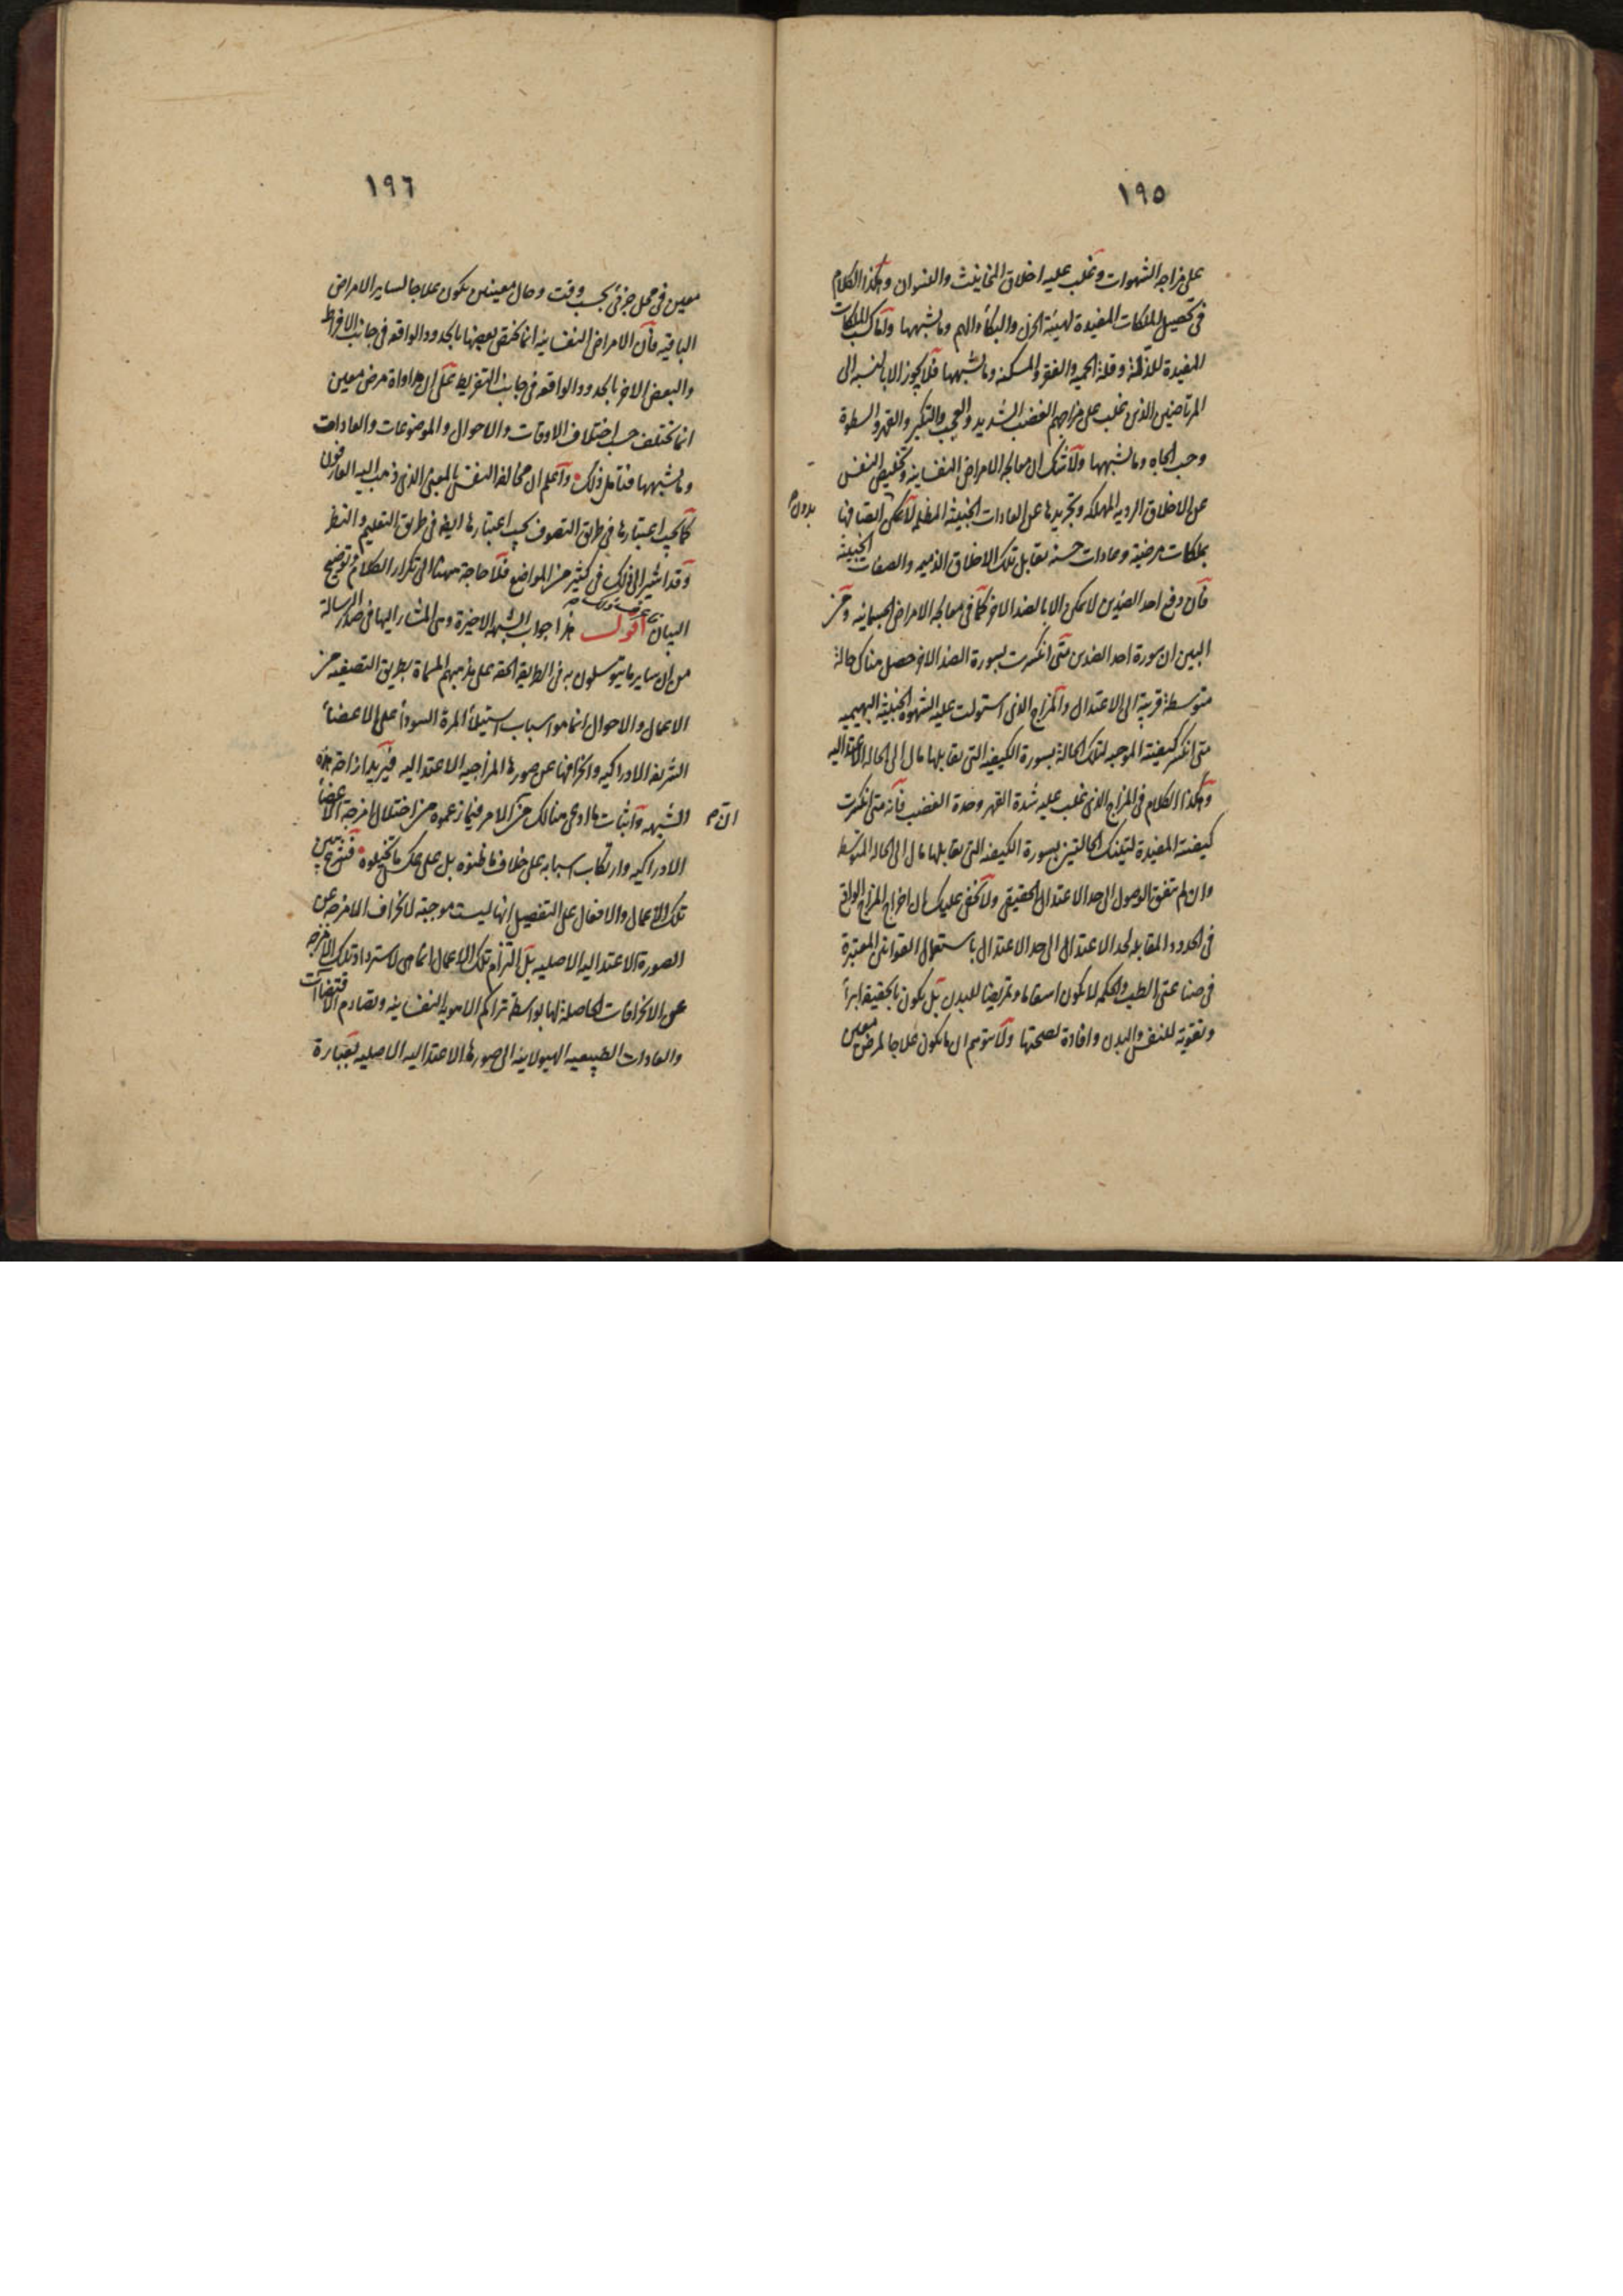 ١٩٥
على مزاجه الشهوات وتغلب عليه اخلاق المخانيث والنسوان وهكذا الكلام
فى تحصيل الملكات المفيدة لهيئة الحزن والبكاء والهم وما يشبهها واما كسب الملكات
المفيدة للذلة وقلة الحميه والفقر والمسكنه وما يشبهها فلا يجوز الا بالنسبه الى
المرتاضين الذين غلب على مزاجهم الغضب الشديد والعجب والتكبر والقهر والسطوة
وحب الجاه وما يشبهها ولا شك ان معالجه الامراض النفسانيه وتخليص النفس
عن الاخلاق الرديه المهلكه وتجريدها عن العادات الخبيثة المظلمه لا يمكن اتصافها
بدون
بملكات مرضية وعادات حسنه تقابل تلك الاخلاق الذميمه والصفات الخبيثة
فان دفع احد الضدين لا يمكن الا بالضد الاخر كما فى معالجه الامراض الجسمانيه ومن
البين ان سورة احد الضدين متى انكسرت بسورة الضد الاخر حصل هناك حالة
متوسطة قريبة الى الاعتدال والمزاج الذى استولت عليه الشهوة الخبيثة البهيميه
متى انكسر كيفيته الموجبه لتلك الحالة بسورة الكيفيه التى تقابلها مال الى الحاله الاعتداليه
وهكذا الكلام فى المزاج الذى غلب عليه شدة القهر وحدة الغضب فانه متى انكسرت
كيفيته المفيدة لتينك الحالتين بسورة الكيفيه التى تقابلها مال الى الحاله المتوسطه
وان لم يتفق الوصول الى حد الاعتدال الحقيقى ولا يخفى عليك ان اخراج المزاج الواقع
فى الحدود المقابله لحد الاعتدال الى حد الاعتدال باستعمال القوانين المعتبرة
فى صناعتى الطب والحكمه لا يكون اسقاما وتمريضا للبدن بل يكون بالحقيقه ابراء
وتقوية للنفس والبدن وافادة لصحتها ولا يتوهم ان ما يكون علاجا لمرض معين
١٩٦
معين فى محل جزئى بحسب وقت وحال معينين يكون علاجا لساير الامراض
الباقيه فان الامراض النفسانيه انما يختص بعضها بالحدود الواقعه فى جانب الافراط
والبعض الاخر بالحدود الواقعه فى جانب التفريط على ان مداواة مرض معين
انما يختلف حسب اختلاف الاوقات والاحوال والموضوعات والعادات
وما يشبهها فتامل ذلك واعلم ان مخالفه النفس بالمعنى الذى ذهب اليه العارفون
كما يجب اعتبارها فى طريق التصوف يجب اعتبارها ايضا فى طريق التعليم والنظر
وقد اشير الى ذلك فى كثير من المواضع فلا حاجة ههنا الى تكرار الكلام وتوضيح
البيان اقول هذا جواب الشبهه الاخيرة وهى المشار اليها فى صدر الرسالة
من ان ساير ما يتوسلون به فى الطريقه الحقه على مذهبهم المسماة بطريق التصفيه من
الاعمال والاحوال انما هو اسباب استيلاء المرة السوداء على الاعضاء
الشريفه الادراكيه وانحرافها عن صورها المزاجيه الاعتداليه فيريد ازاحة هذه
الشبهه واثبات ما ادعى هنالك من الامر فيما زعموه من اختلال امزجة الاعضاء
الادراكيه وارتكاب اسبابه على خلاف ما ظنوه بل على عكس ما تخيلوه
تلك الاعمال والافعال على التفصيل انها ليست موجبة لانحراف الامزجه عن
الصورة الاعتداليه الاصليه بل التزام تلك الاعمال انما هى لاسترداد تلك الامزجه
عن الانحرافات الحاصلة لها بواسطة تراكم الامور النفسانيه وتصادم الاقتضاآت
والعادات الطبيعيه الهيولانيه الى صورها الاعتداليه الاصليه بعبارة